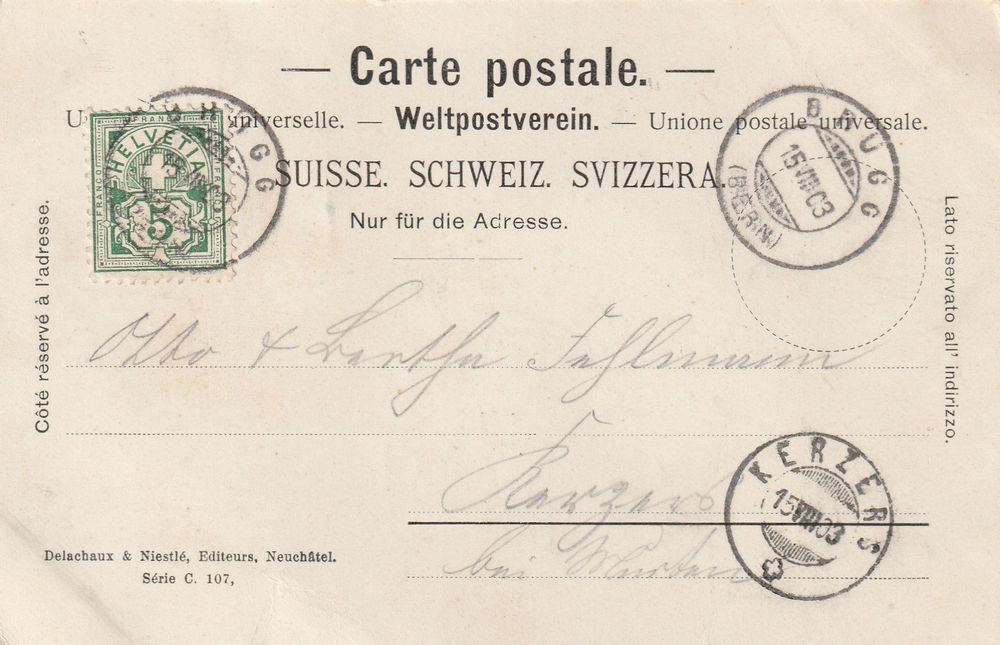 — Carte postale. —
U universelle. — Weltpostverein. — Unione postale universale.
SUISSE. SCHWEIZ. SVIZZERA.
Nur für die Adresse.
FRANCO
FRANCO
HELVETIA
5
BRUGG
BRUGG
(BERN)
15 VIII 03
Côté réservé à l'adresse.
Lato riservato all' indirizzo.
Otto & Bertha Fehlmann
Kerzers
bei Murten
KERZERS
15 VIII 03
Delachaux & Niestlé, Editeurs, Neuchâtel.
Série C. 107,